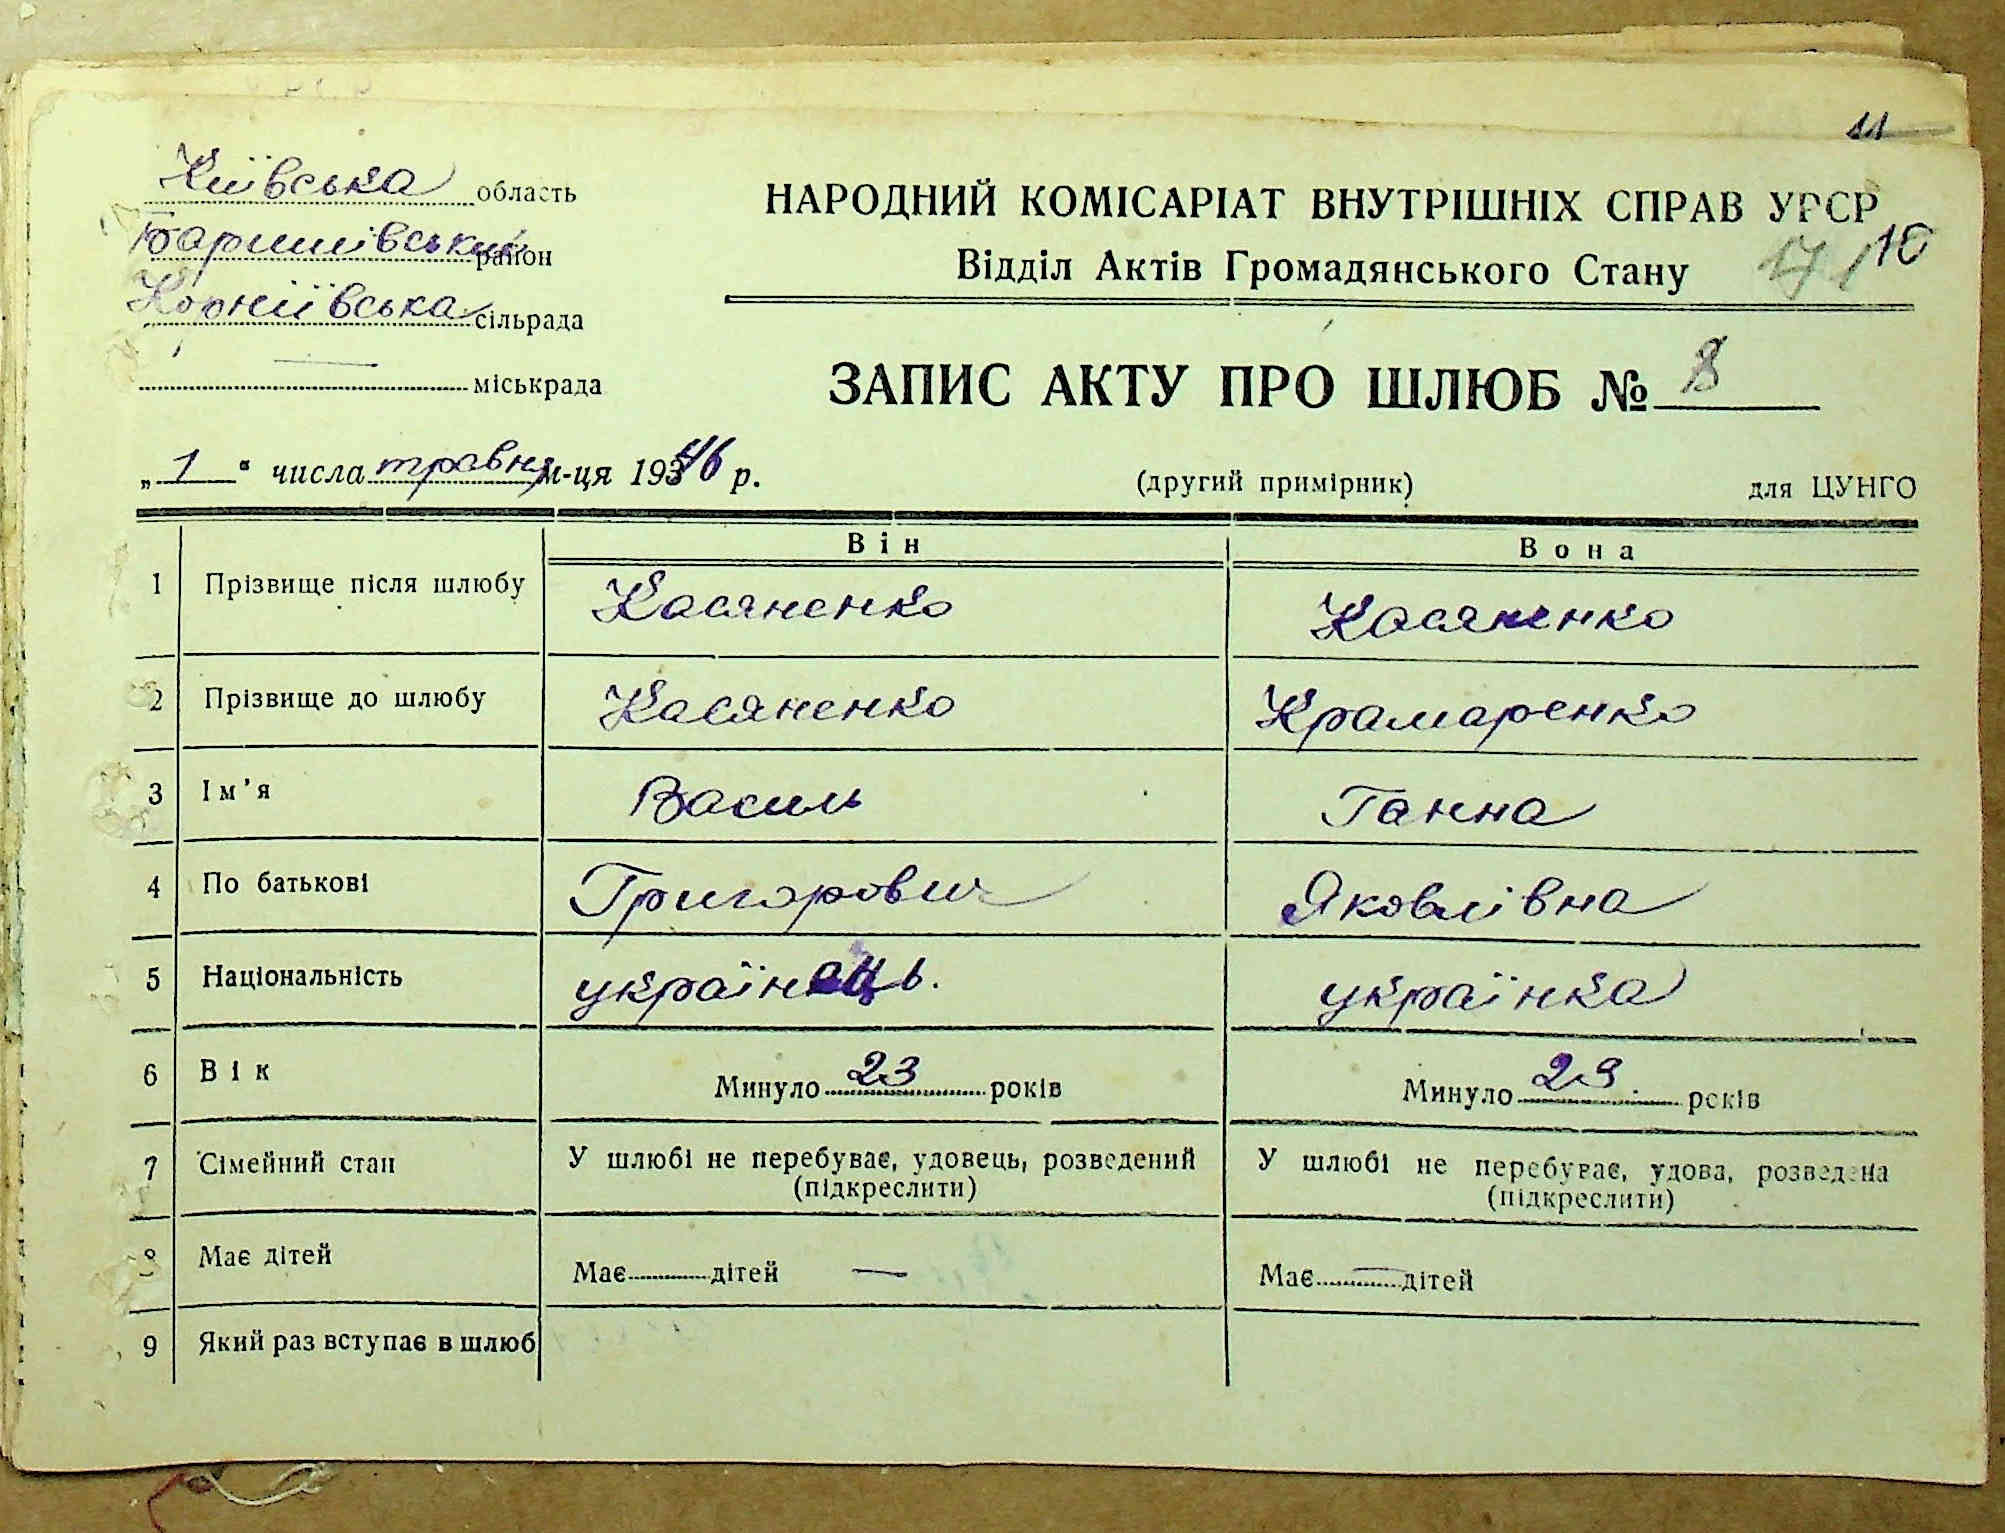 11
Київська область
Баришівський район
Корніївська сільрада
міськрада
НАРОДНИЙ КОМІСАРІАТ ВНУТРІШНІХ СПРАВ УРСР
Відділ Актів Громадянського Стану 17 10
ЗАПИС АКТУ ПРО ШЛЮБ № 8
„1“ числа травня м-ця 1946 р.
(другий примірник) для ЦУНГО
Він Вона
1 Прізвище після шлюбу Касяненко Касяненко
2 Прізвище до шлюбу Касяненко Крамаренко
3 Ім’я Василь Ганна
4 По батькові Григорович Яковлівна
5 Національність українець. українка
6 Вік Минуло 23 років Минуло 23 років
7 Сімейний стан У шлюбі не перебуває, удовець, розведений У шлюбі не перебуває, удова, розведена
(підкреслити) (підкреслити)
8 Має дітей Має дітей — Має — дітей
9 Який раз вступає в шлюб